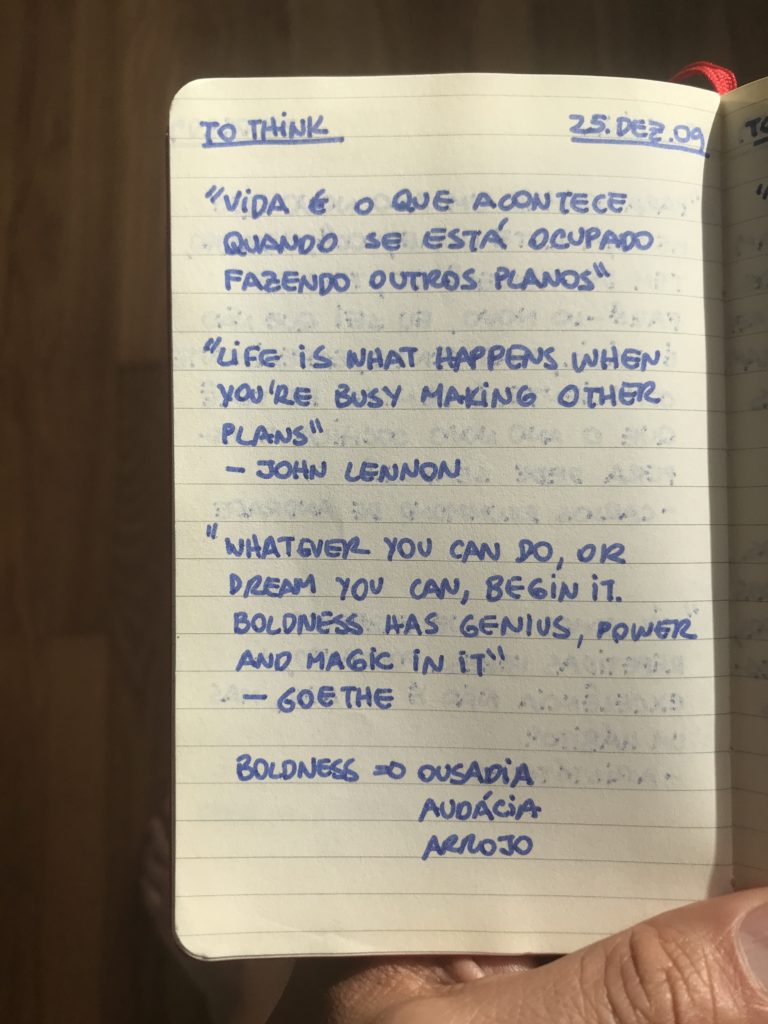 TO THINK 25.DEZ.09
"VIDA É O QUE ACONTECE
QUANDO SE ESTÁ OCUPADO
FAZENDO OUTROS PLANOS"
"LIFE IS WHAT HAPPENS WHEN
YOU'RE BUSY MAKING OTHER
PLANS"
- JOHN LENNON
"WHATEVER YOU CAN DO, OR
DREAM YOU CAN, BEGIN IT.
BOLDNESS HAS GENIUS, POWER
AND MAGIC IN IT"
- GOETHE
BOLDNESS => OUSADIA
AUDÁCIA
ARROJO